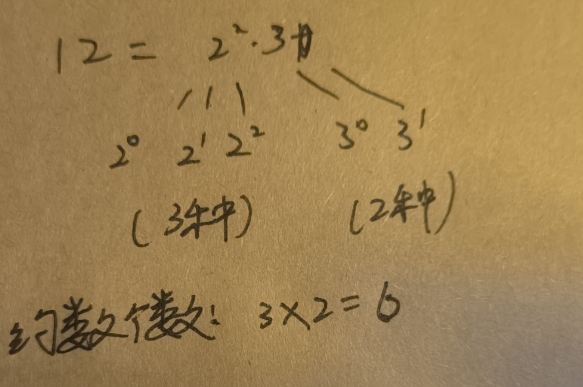 12 = 2²·3
2⁰ 2¹ 2² 3⁰ 3¹
(3种) (2种)
约数个数: 3×2=6